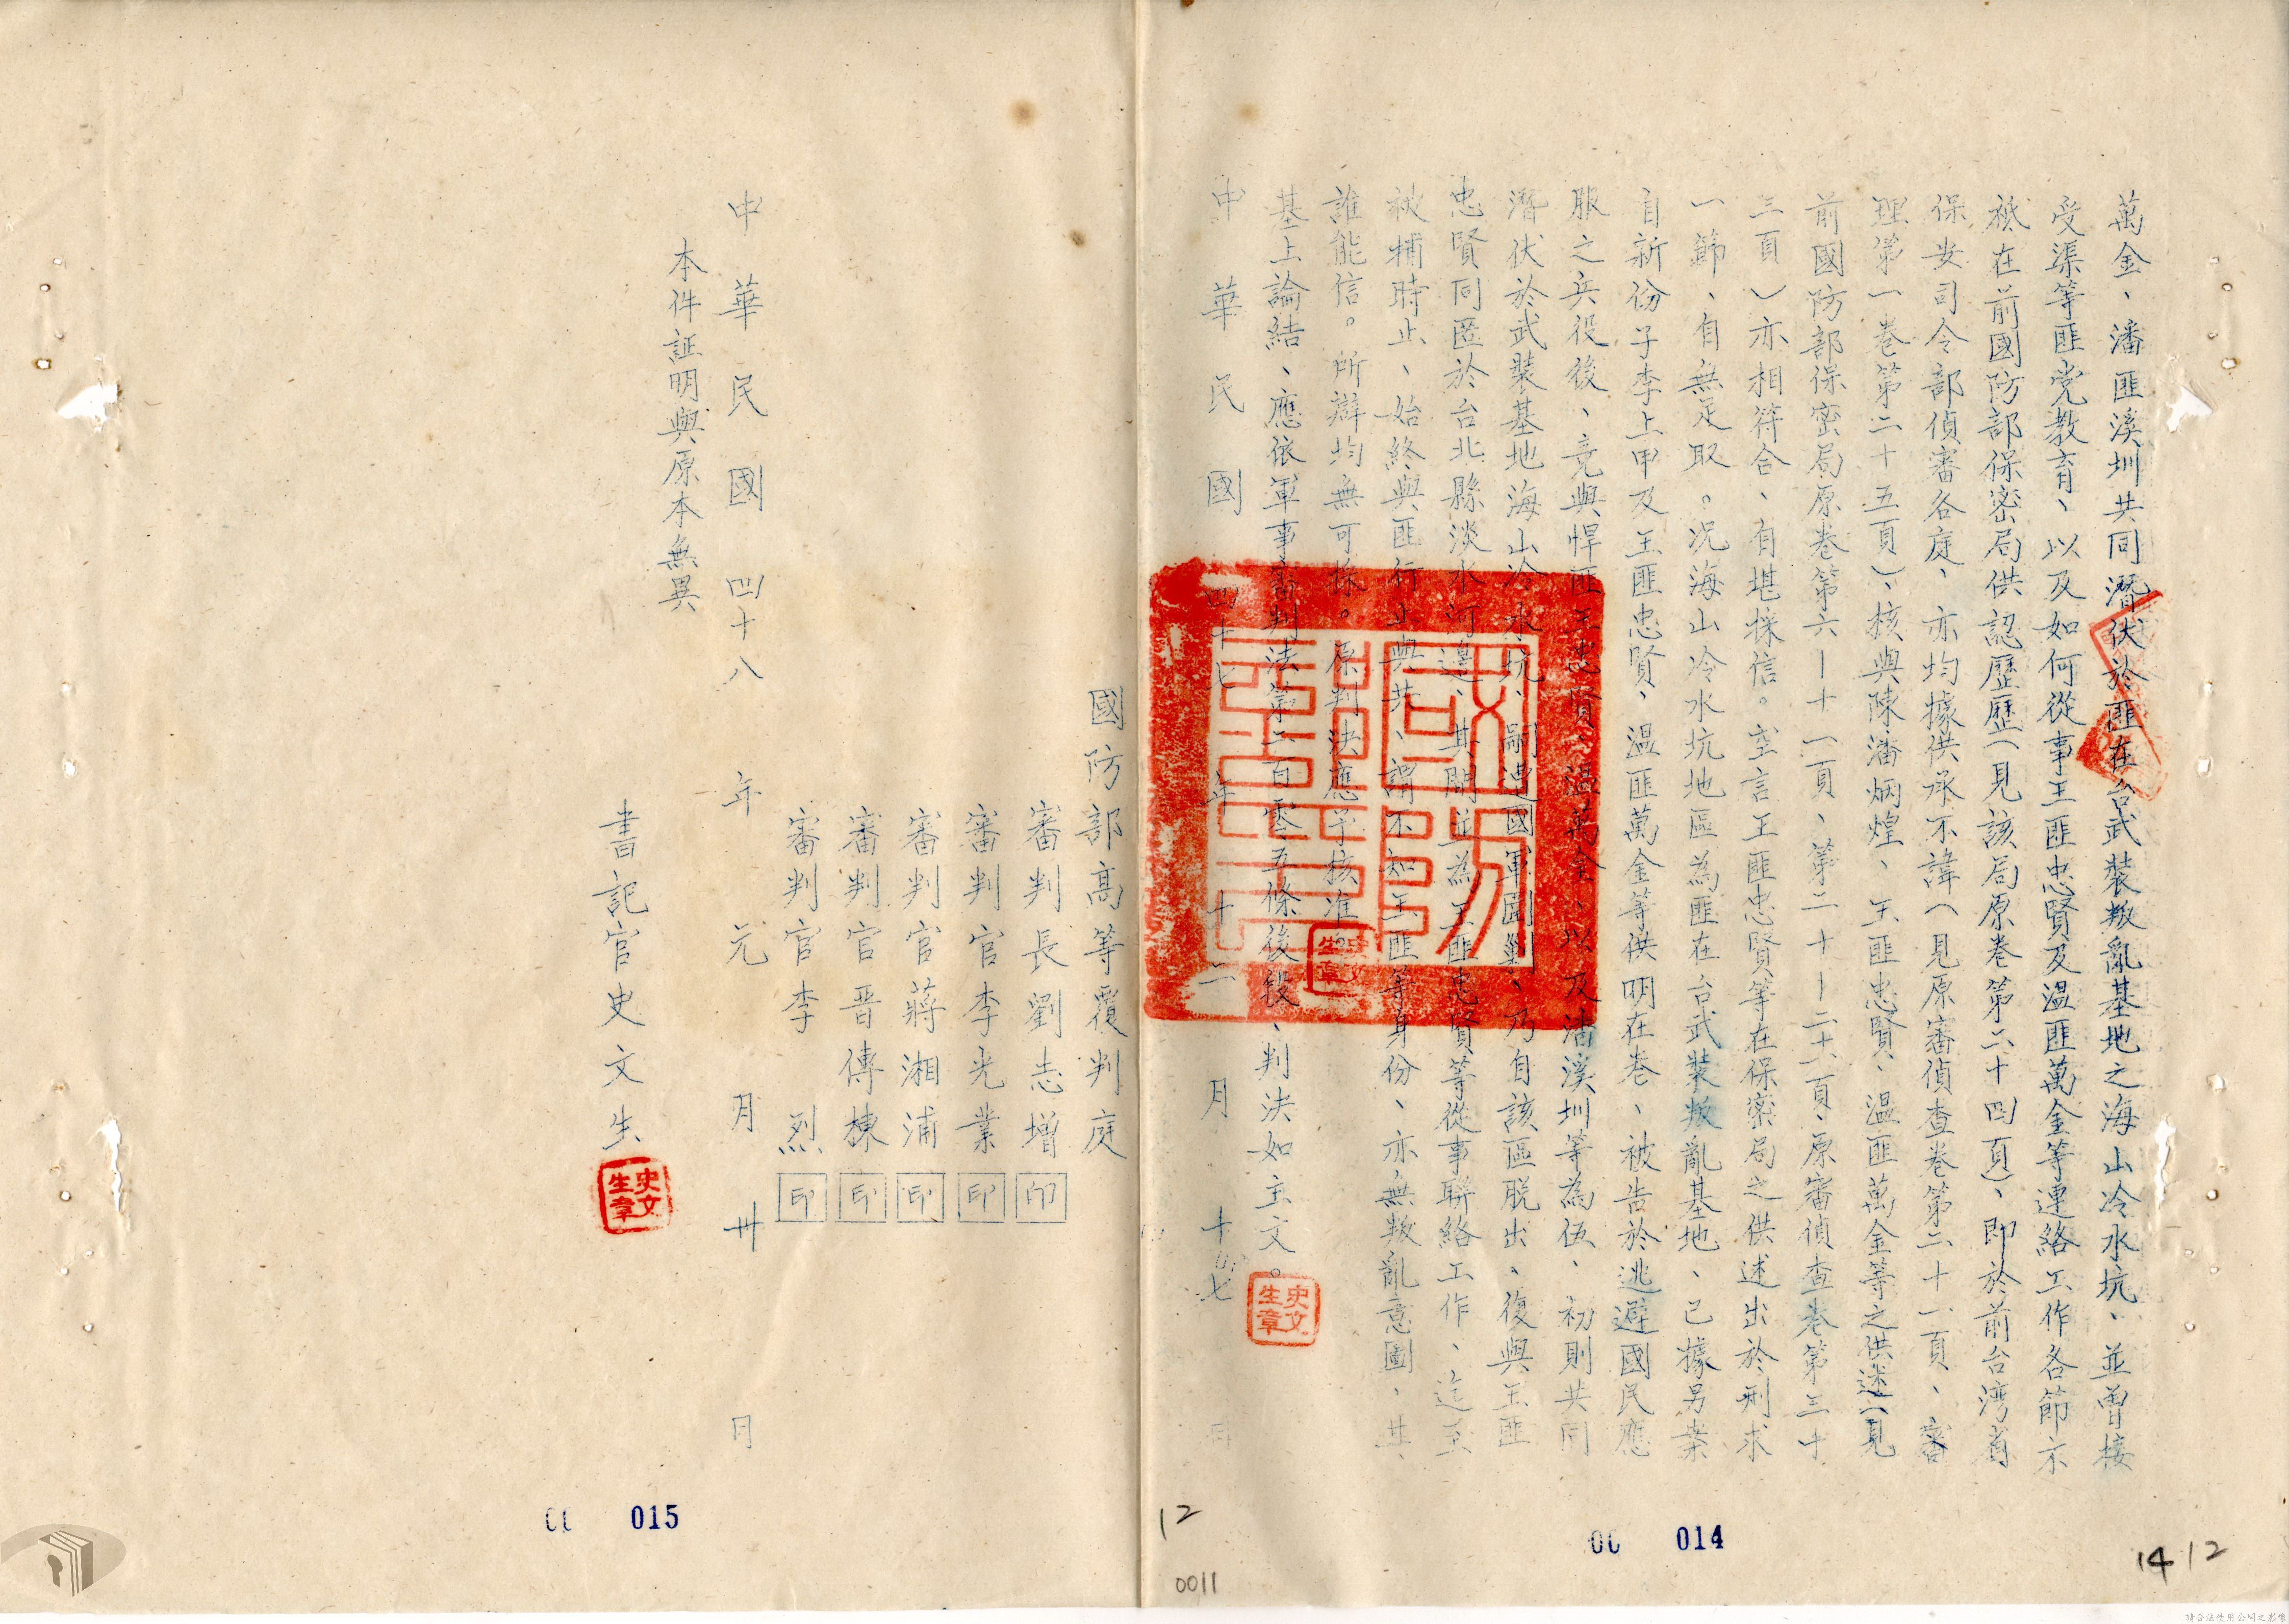 萬金、潘匪溪圳共同潛伏於匪在台武裝叛亂基地之海山冷水坑、並曾接
受渠等匪党教育、以及如何從事王匪忠賢及溫匪萬金等連絡工作各節不
祇在前國防部保密局供認歷歷(見該局原卷第二十四頁)、即於前台湾省
保安司令部偵審各庭、亦均據供承不諱(見原審偵查卷第二十一頁、審
理第一卷第二十五頁)、核與陳潘炳煌、王匪忠賢、溫匪萬金等之供述(見
前國防部保密局原卷第六—十一頁、第二十—二六頁、原審偵查卷第三十
三頁)亦相符合、有堪採信。空言王匪忠賢等在保密局之供述出於刑求
一節、自無足取。況海山冷水坑地區為匪在台武裝叛亂基地、已據另案
自新份子李上甲及王匪忠賢、溫匪萬金等供明在卷、被告於逃避國民應
服之兵役後、竟與悍匪王忠賢、溫萬金、以及潘溪圳等為伍、初則共同
潛伏於武裝基地海山冷水坑、嗣遭國軍圍剿、乃自該區脱出、復與王匪
忠賢同匿於台北縣淡水河邊、其間並為王匪忠賢等從事聯絡工作、迄至
被捕時止、始終與匪行止與共、謂不知王匪等身份、亦無叛亂意圖、其
誰能信。所辯均無可採。原判決應予核准。
基上論結、應依軍事審判法第二百零五條後段、判決如主文。
中華民國四十七年十二月十七日
國防部
史文生章
史文生章
國防部高等覆判庭
審判長劉志增 印
審判官李光業 印
審判官蔣湘浦 印
審判官晋傳棟 印
審判官李烈 印
中華民國四十八年元月卅日
本件証明與原本無異
書記官史文生
史文生章
015
014
12
0011
14 12
請合法使用公開之影像